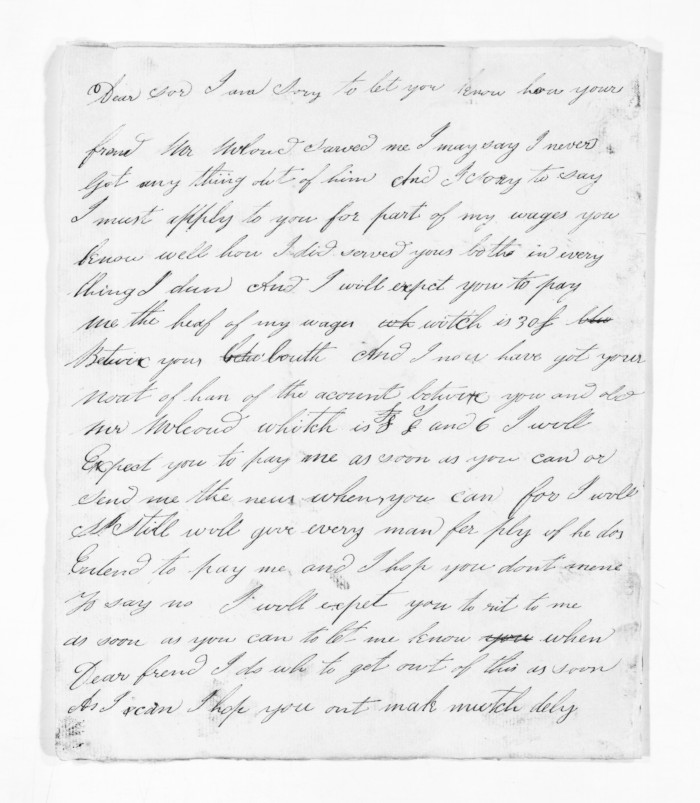 Dear sor I am Sory to let you know how your
frend Mr Mcloud sarved me I may say I never
Got any thing out of him And I sory to say
I must apply to you for part of my wages you
know well how I did served yous both in every
thing I dun And I woll expct you to pay
me the heaf of my wages wh witch is 30£
Betwix yous bouth And I now have got your
noat of han of the acount betwix you and old
Mr Mcloud whitch is £ and 6 I woll
Expect you to pay me as soon as you can or
send me the neus when you can for I woll
Still woll give every man fer ply if he dos
Entend to pay me and I hop you dont mene
To say no I woll expet you to rit to me
as soon as you can to let me know you when
Dear frend I do wh to get out of this as soon
As I can I hop you ont mak mutch dely